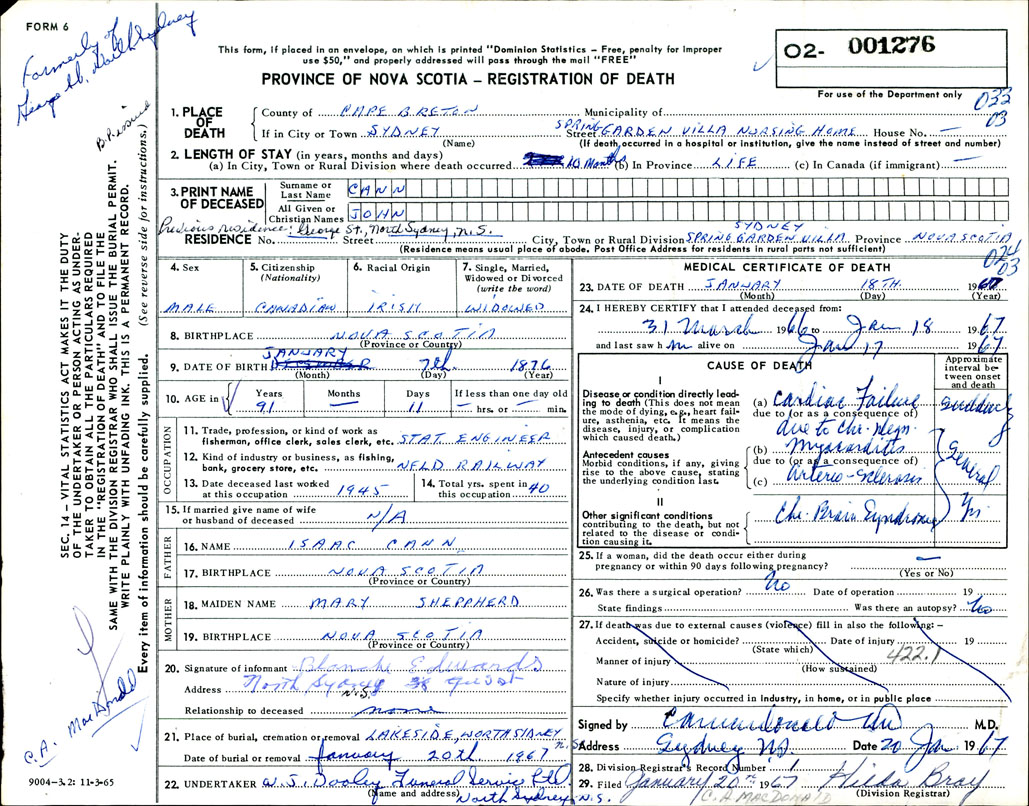 FORM 6
Formerly of
George St. North Sydney
This form, if placed in an envelope, on which is printed "Dominion Statistics – Free, penalty for improper
use $50," and properly addressed will pass through the mail "FREE"
PROVINCE OF NOVA SCOTIA – REGISTRATION OF DEATH
02- 001276
For use of the Department only
033
03
1. PLACE OF DEATH
County of CAPE BRETON Municipality of
If in City or Town SYDNEY Street SPRING GARDEN VILLA NURSING HOME House No. —
(Name) (If death occurred in a hospital or institution, give the name instead of street and number)
2. LENGTH OF STAY (in years, months and days)
(a) In City, Town or Rural Division where death occurred 10 Months (b) In Province LIFE (c) In Canada (if immigrant) —
3. PRINT NAME OF DECEASED
Surname or Last Name CANN
All Given or Christian Names JOHN
Previous residence: George St., North Sydney, N.S.
SYDNEY
RESIDENCE No. Street City, Town or Rural Division SPRING GARDEN VILLA Province NOVA SCOTIA
(Residence means usual place of abode. Post Office Address for residents in rural parts not sufficient)
024
03
4. Sex
MALE
5. Citizenship
(Nationality)
CANADIAN
6. Racial Origin
IRISH
7. Single, Married,
Widowed or Divorced
(write the word)
WIDOWED
8. BIRTHPLACE NOVA SCOTIA
(Province or Country)
JANUARY
9. DATE OF BIRTH DECEMBER 7th. 1876
(Month) (Day) (Year)
10. AGE in
Years Months Days If less than one day old
91 — 11 — hrs. or — min.
OCCUPATION
11. Trade, profession, or kind of work as
fisherman, office clerk, sales clerk, etc. STAT. ENGINEER
12. Kind of industry or business, as fishing,
bank, grocery store, etc. NFLD RAILWAY
13. Date deceased last worked
at this occupation 1945
14. Total yrs. spent in
this occupation 40
15. If married give name of wife
or husband of deceased N/A
FATHER
16. NAME ISAAC CANN
17. BIRTHPLACE NOVA SCOTIA
(Province or Country)
MOTHER
18. MAIDEN NAME MARY SHEPPHERD
19. BIRTHPLACE NOVA SCOTIA
(Province or Country)
20. Signature of informant Blanche Edwards
Address North Sydney N.S.
Relationship to deceased none
21. Place of burial, cremation or removal LAKESIDE, NORTH SIDNEY N.S.
Date of burial or removal January 20th 1967
22. UNDERTAKER W. J. Dooley Funeral Service Ltd
(Name and address) North Sydney N.S.
MEDICAL CERTIFICATE OF DEATH
23. DATE OF DEATH JANUARY 18TH. 1967
(Month) (Day) (Year)
24. I HEREBY CERTIFY that I attended deceased from:
31 March 1966 to Jan 18 1967
and last saw him alive on Jan 17 1967
CAUSE OF DEATH
Approximate
interval be-
tween onset
and death
I
Disease or condition directly lead-
ing to death (This does not mean
the mode of dying, e.g., heart fail-
ure, asthenia, etc. It means the
disease, injury, or complication
which caused death.)
(a) Cardiac Failure suddenly
due to (or as a consequence of)
due to chr. degn.
Antecedent causes
Morbid conditions, if any, giving
rise to the above cause, stating
the underlying condition last.
(b) Myocarditis
due to (or as a consequence of)
(c) Arterio-sclerosis
Several
Yrs
II
Other significant conditions
contributing to the death, but not
related to the disease or condi-
tion causing it.
Chr. Brain Syndrome
25. If a woman, did the death occur either during
pregnancy or within 90 days following pregnancy? —
(Yes or No)
26. Was there a surgical operation? No Date of operation 19
State findings Was there an autopsy? No
27. If death was due to external causes (violence) fill in also the following: –
Accident, suicide or homicide? Date of injury 19
(State which)
422.1
Manner of injury
(How sustained)
Nature of injury
Specify whether injury occurred in industry, in home, or in public place
Signed by C A MacDonald MD M.D.
Address Sydney N.S. Date 20 Jan 1967
28. Division Registrar's Record Number 1
29. Filed January 20th 1967 Hilda Bray
(Division Registrar)
C. A. MACDONALD
SEC. 14 – VITAL STATISTICS ACT MAKES IT THE DUTY
OF THE UNDERTAKER OR PERSON ACTING AS UNDER-
TAKER TO OBTAIN ALL THE PARTICULARS REQUIRED
IN THE "REGISTRATION OF DEATH" AND TO FILE THE
SAME WITH THE DIVISION REGISTRAR WHO SHALL ISSUE THE BURIAL PERMIT.
WRITE PLAINLY WITH UNFADING INK. THIS IS A PERMANENT RECORD.
Every item of information should be carefully supplied. (See reverse side for instructions.)
B.P. issued
C.A. MacDonald
9004-3.2: 11-3-65